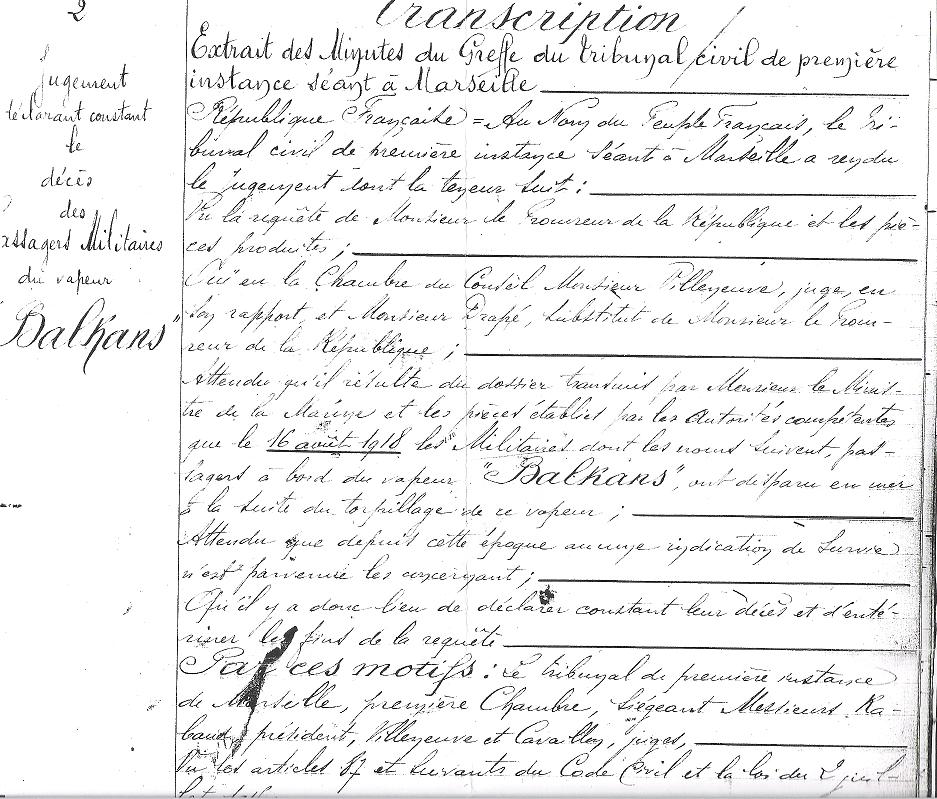 2
Jugement
déclarant constant
le
décès
des
assagers Militaires
du vapeur
Balkans"
Transcription
Extrait des Minutes du Greffe du tribunal civil de première
instance séant à Marseille
République Française = Au Nom du Peuple Français, le tri-
bunal civil de première instance séant à Marseille a rendu
le jugement dont la teneur suit :
Vu la requête de Monsieur le Procureur de la République et les piè-
ces produites ;
Ouï en la Chambre du Conseil Monsieur Villeneuve, juge, en
son rapport et Monsieur Drapé, substitut de Monsieur le Procu-
reur de la République ;
Attendu qu'il résulte du dossier transmis par Monsieur le Minis-
tre de la Marine et les pièces établies par les Autorités compétentes
que le 16 août 1918 les Militaires dont les noms suivent, pas-
sagers à bord du vapeur "Balkans", ont disparu en mer
à la suite du torpillage de ce vapeur ;
Attendu que depuis cette époque aucune indication de survie
n'est parvenue les concernant ;
Qu'il y a donc lieu de déclarer constant leur décès et d'enté-
riner les fins de la requête
Par ces motifs : Le tribunal de première instance
de Marseille, première Chambre, siégeant Messieurs Ra-
baud président, Villeneuve et Cavaillon, juges,
Vu les articles 87 et suivants du Code Civil et la loi du 2 juil-